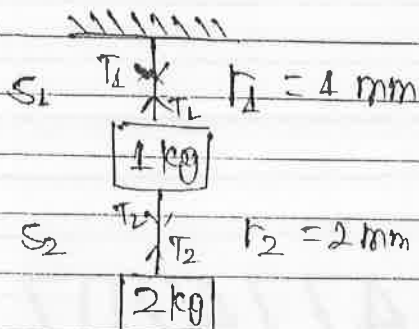 T₁
S₁ T₁ r₁ = 4 mm
1 kg
T₂
S₂ T₂ r₂ = 2 mm
2 kg